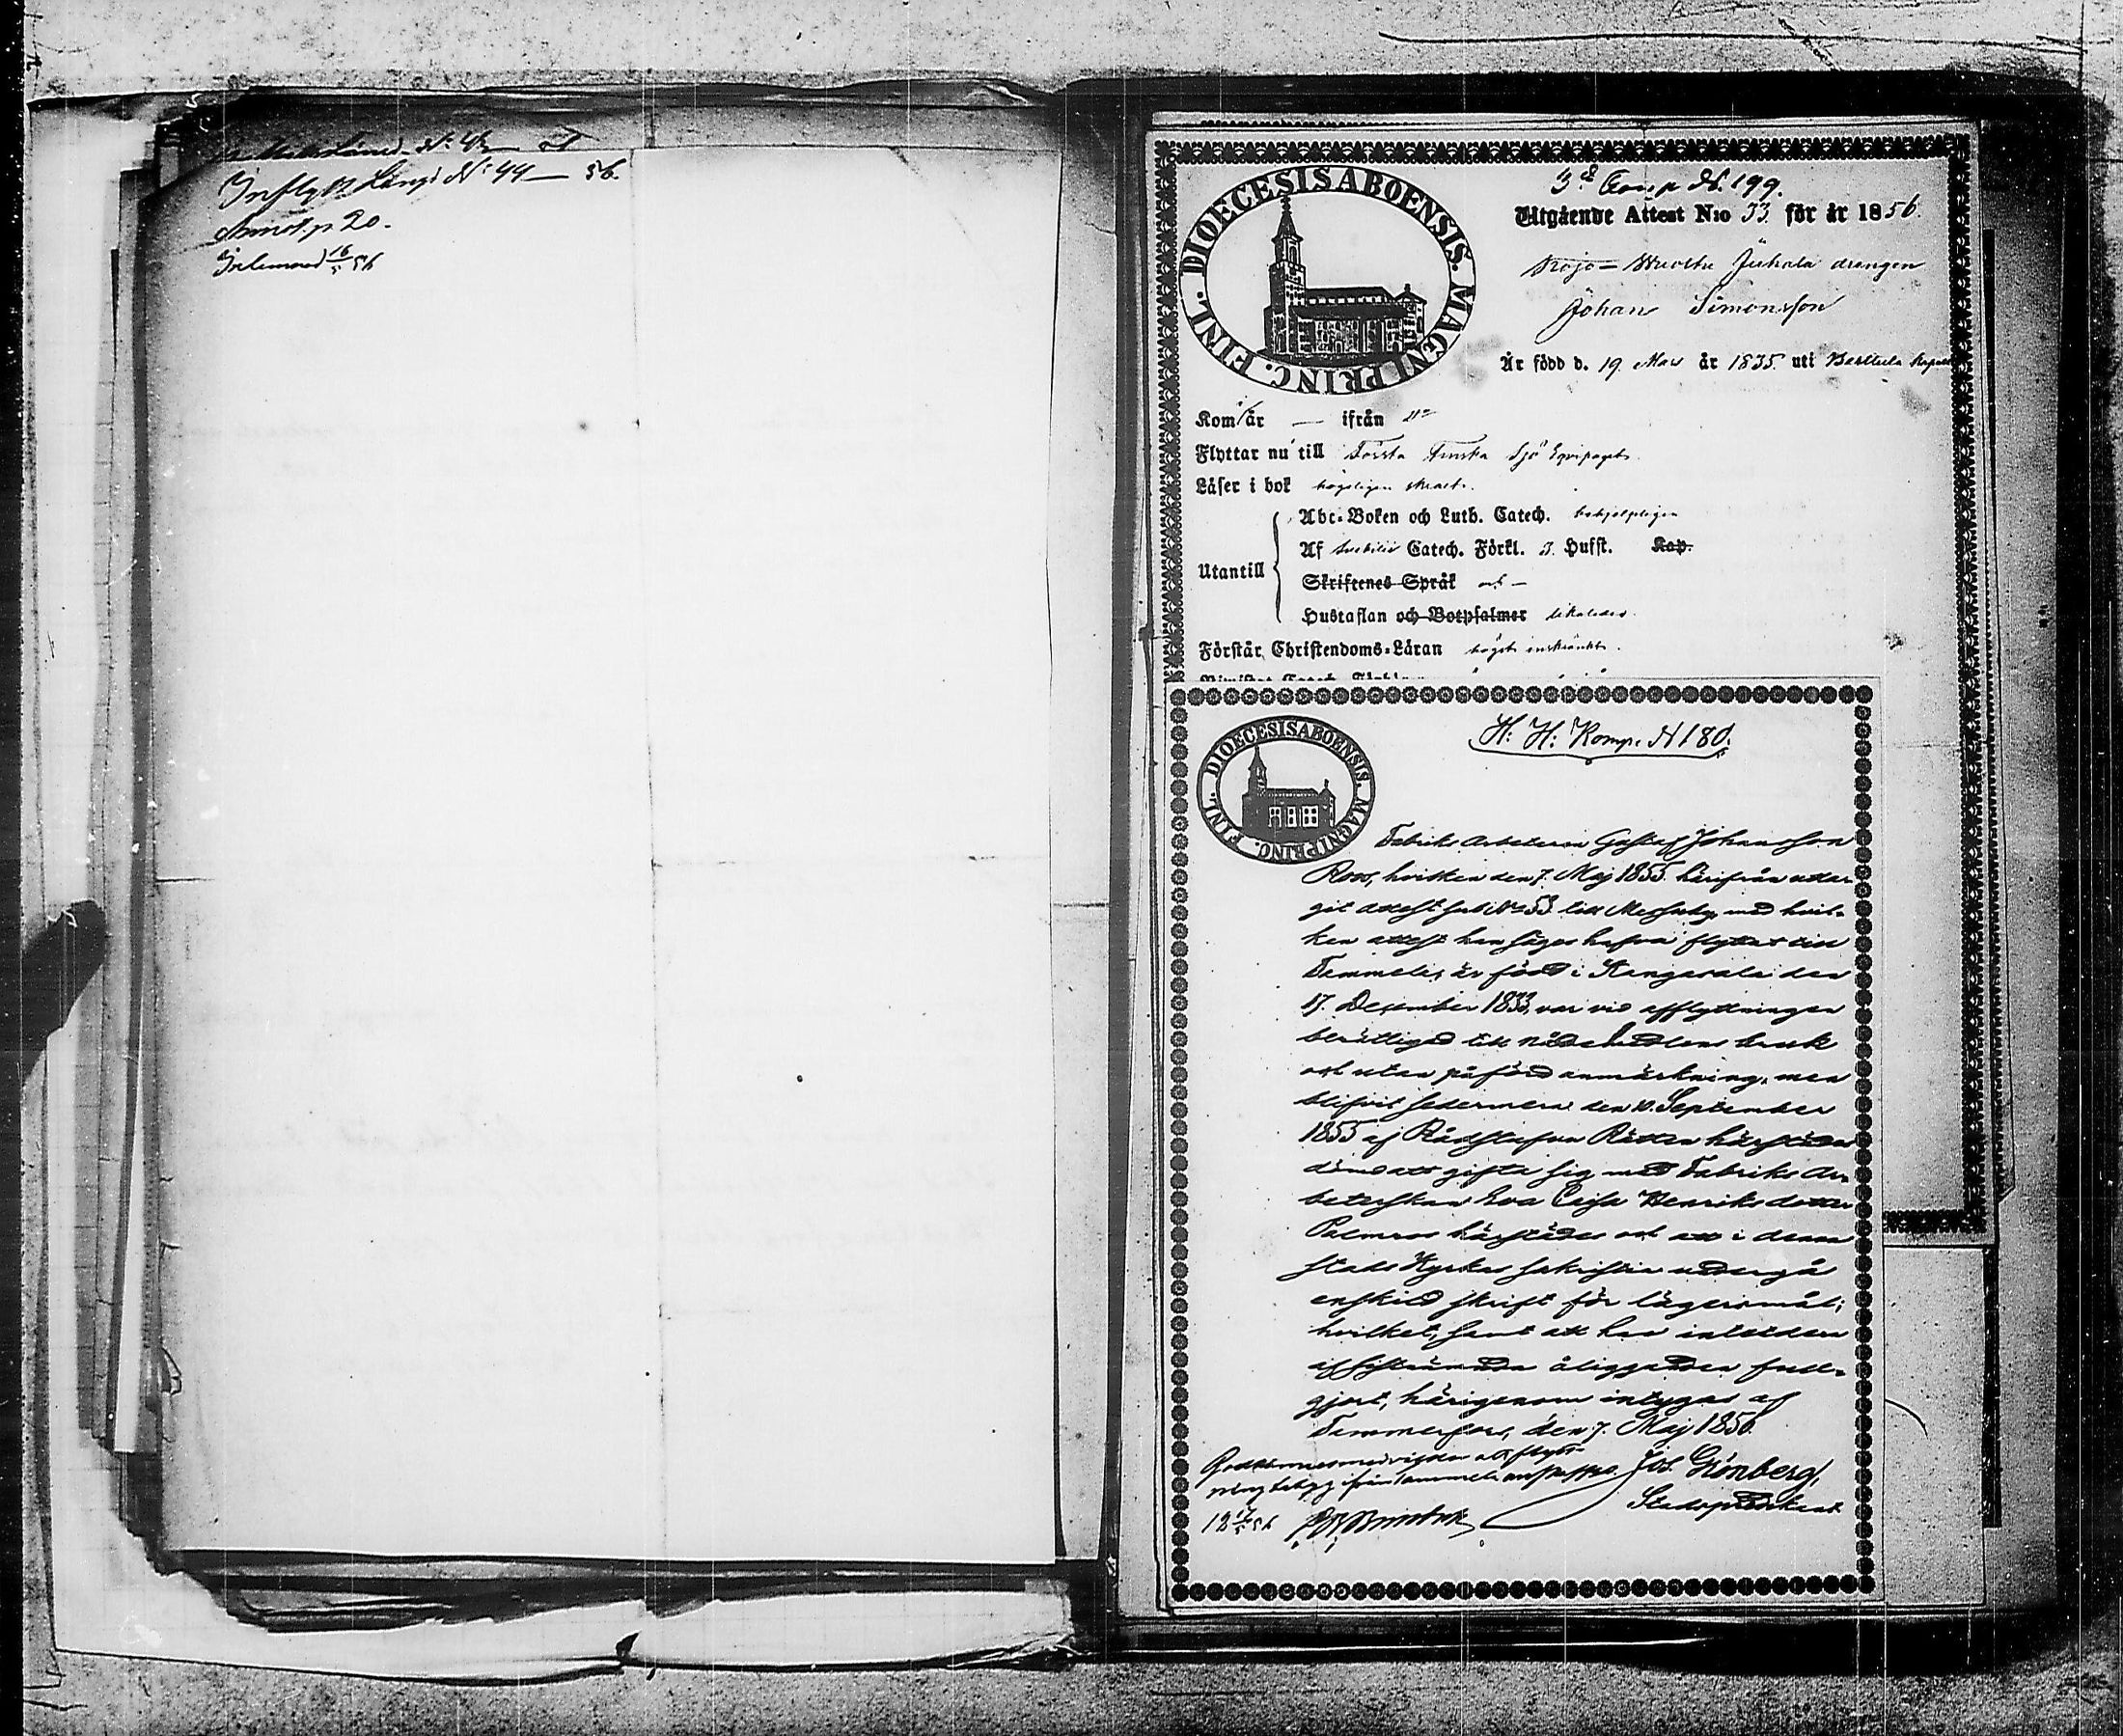 Inflytt Längd No 44 — 56.
Annot. p 20.
Inlemnad 16/5 56
DIOECESIS ABOENSIS. MAGNI PRINC. FINL.
3e Comp No 199.
Utgående Attest N:o 33. för år 1856.
Juhola drengen
Johan Simonsson
Är född d. 19. Mars år 1835. uti
Kom år — ifrån
Flyttar nu till Första Finska Sjö Equipaget.
Läser i bok högeligen svagt.
Utantill
Abc-Boken och Luth. Catech. behjelpligen
Af Svebilii Catech. Förkl. 3. Hufst. Kap.
Skriftenes Språk och —
Hustaflan och Botpsalmer likaledes.
Förstår Christendoms-Läran högst inskränkt.
DIOECESIS ABOENSIS. MAGNI PRINC. FINL.
H: H: Komp. No 180.
Fabriks Arbetaren Gustaf Johansson
Roos, hvilken den 7. Maj 1855. härifrån utta-
git attest sub No 53. till Messuby, med hvil-
ken attest han säges hafva flyttat till
Tammela, är född i Kangasala den
17. December 1833, var vid afflyttningen
berättigad till Nådemedlens bruk
och utan påförd anmärkning, men
blifvit sedermera den 10. September
1855 af Rådstufvu Rätten härstädes
dömd att gifta sig med Fabriks Ar-
beterskan Eva Caisa Henriksdotter
Palmros härstädes och att i denna
stads Kyrkas sakristia undergå
enskild skrift för lägersmål;
hvilket, samt att han intetdera
af sistnämnda åligganden full-
gjort, härigenom intygas af
Tammerfors, den 7. Maj 1856.
Jos. Grönberg,
Stadspredikant
12 7/5 56